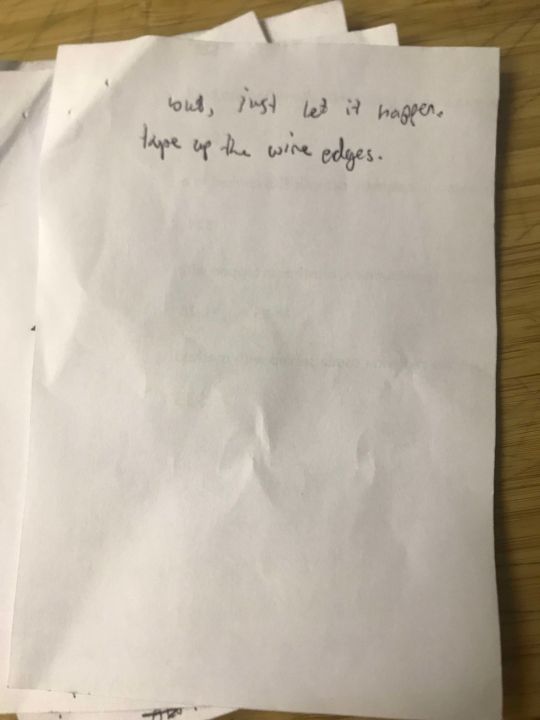 out, just let it happen.
tape up the wire edges.